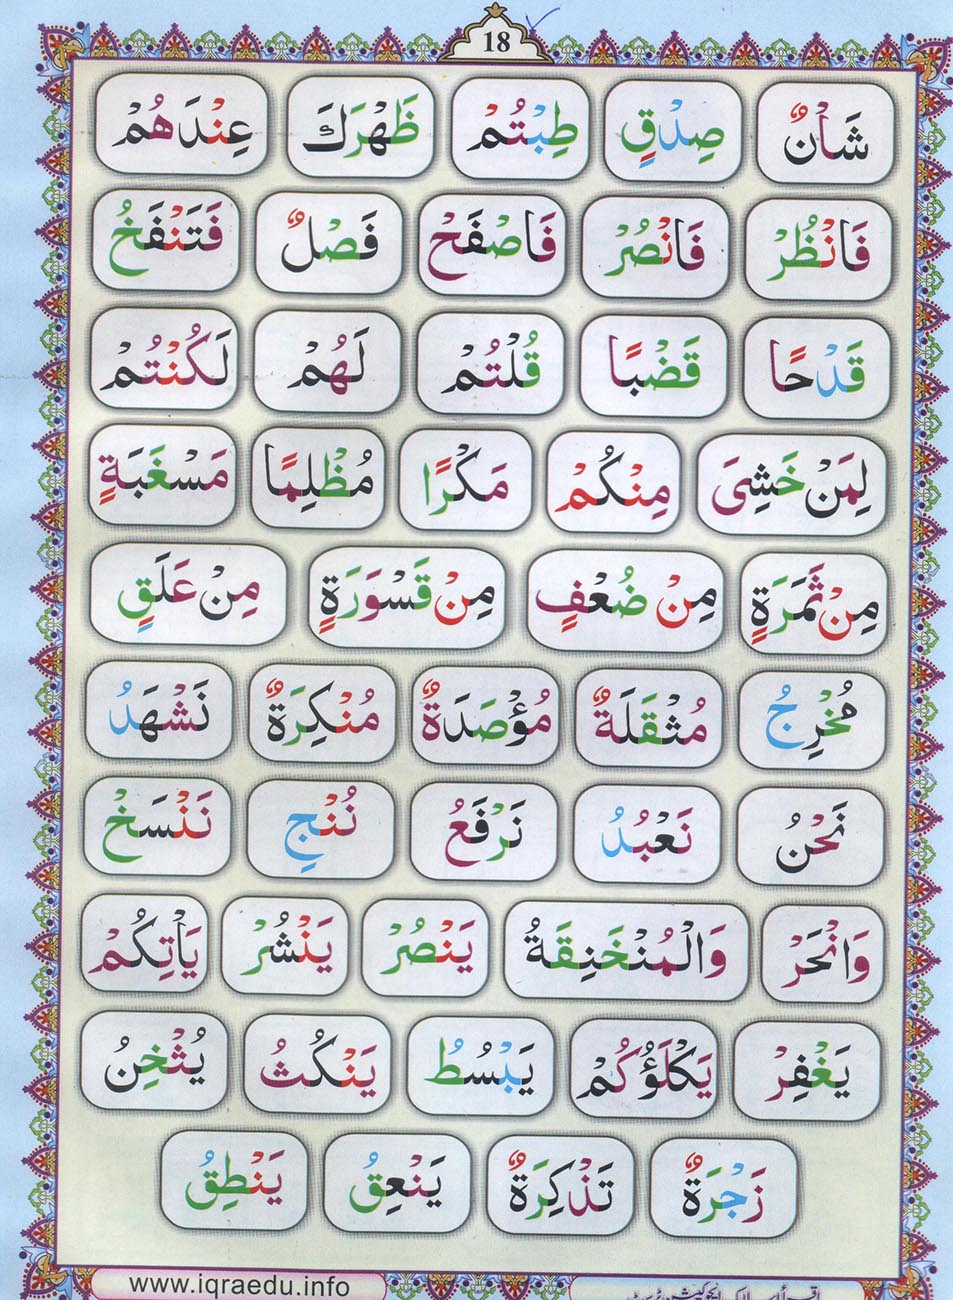 18
شَاْنٌ صِدْقٍ طِبْتُمْ ظَهْرَكَ عِنْدَهُمْ
فَانْظُرْ فَانْصُرْ فَاصْفَحْ فَصْلٌ فَتَنْفَخُ
قَدْحًا قَضْبًا قُلْتُمْ لَهُمْ لَكُنْتُمْ
لِمَنْ خَشِىَ مِنْكُمْ مَكْرًا مُظْلِمًا مَسْغَبَةٍ
مِنْ ثَمَرَةٍ مِنْ ضُعْفٍ مِنْ قَسْوَرَةٍ مِنْ عَلَقٍ
مُخْرِجُ مُثْقَلَةٌ مُؤْصَدَةٌ مُنْكِرَةٌ نَشْهَدُ
نَحْنُ نَعْبُدُ نَرْفَعُ نُنْجِ نَنْسَخْ
وَانْحَرْ وَالْمُنْخَنِقَةُ يَنْصُرْ يَنْشُرْ يَاْتِكُمْ
يَغْفِرْ يَكْلَؤُكُمْ يَبْسُطُ يَنْكُثُ يُثْخِنُ
زَجْرَةٌ تَذْكِرَةٌ يَنْعِقُ يَنْطِقُ
www.iqraedu.info